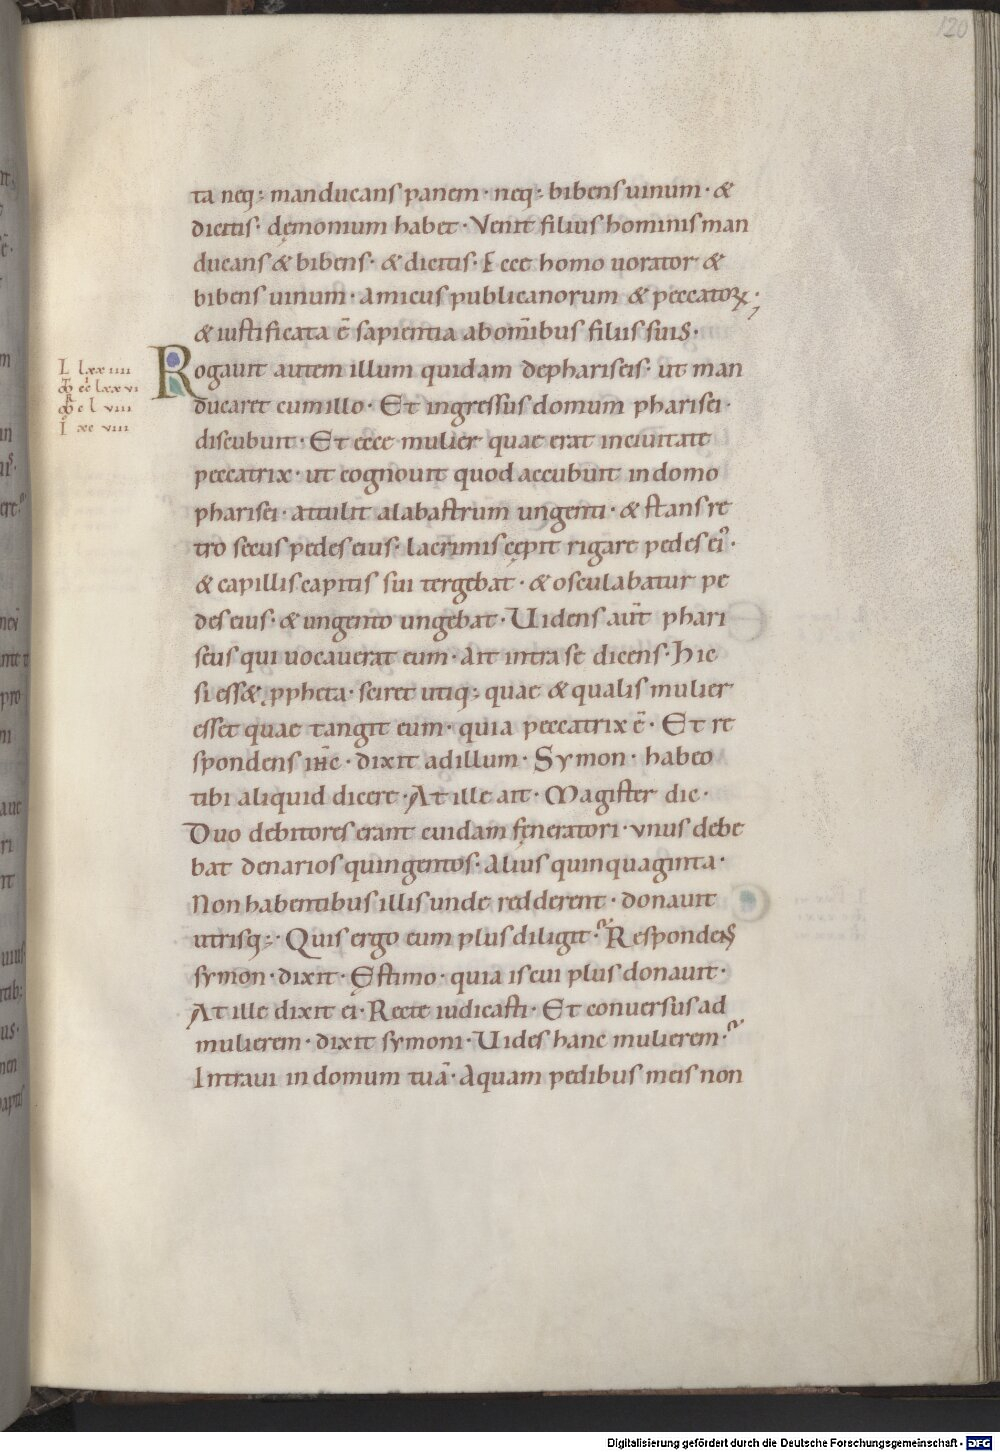 120
ta neq; manducans panem · neq; bibens uinum · &
dicitis · dęmonium habet · Venit filius hominis man
ducans & bibens · & dicitis · Ecce homo uorator &
bibens uinum · amicus publicanorum & peccatoꝝ ·
& iustificata ē sapientia abom̄ibus filiis suis ·
L lxxiiii
Rogauit autem illum quidam depharisęis · ut man
ducaret cumillo · Et ingressus domum pharisei ·
discubuit · Et ecce mulier quae erat inciuitate
peccatrix · ut cognouit quod accubuit indomo
pharisei · attulit alabastrum ungenti · & stans re
tro secus pedes eius · lacrimis cępit rigare pedes ei᾽ ·
& capillis capitis sui tergebat · & osculabatur pe
des eius · & ungento ungebat · Uidens aūt phari
seus qui uocauerat eum · ait intra se dicens · Hic
si ess& ꝓpheta · sciret utiq; quae & qualis mulier
esset quae tangit eum · quia peccatrix ē · Et re
spondens ih̄c · dixit adillum · Symon · habeo
tibi aliquid dicere · At ille ait · Magister dic ·
Duo debitores erant cuidam fęneratori · vnus debe
bat denarios quingentos · alius quinquaginta ·
Non habentibus illis unde redderent · donauit
utrisq; · Quis ergo eum plus diligit · Respondens
symon · dixit · Ęstimo · quia is cui plus donauit ·
At ille dixit ei · Recte iudicasti · Et conuersus ad
mulierem · dixit symoni · Uides hanc mulierem ·
Intraui in domum tuā · Aquam pedibus meis non
Digitalisierung gefördert durch die Deutsche Forschungsgemeinschaft - DFG